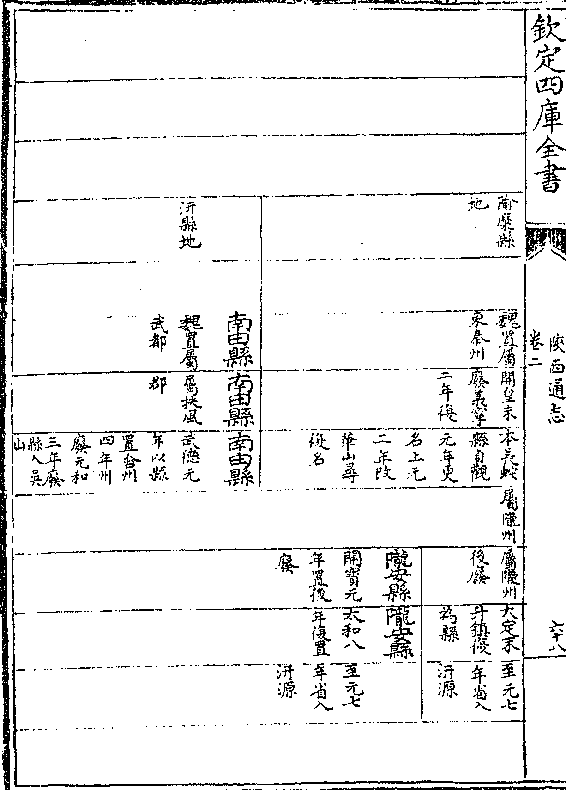 欽定四庫全書
陝西通志
卷二
六十八
隃糜縣
地
汧縣地
魏置屬
東秦州
南由縣
魏置屬
武都
開皇末
廢義寧
二年復
南由縣
屬扶風
郡
本長蛇
縣貞觀
元年更
名上元
二年改
華山尋
復名
南由縣
武德元
年以縣
置含州
四年州
廢元和
三年廢
縣入吳
山
屬隴州
屬隴州
後廢
隴安縣
開寶元
年置後
廢
大定末
升鎮復
為縣
隴安縣
太和八
年復置
至元七
年省入
汧源
至元七
年省入
汧源